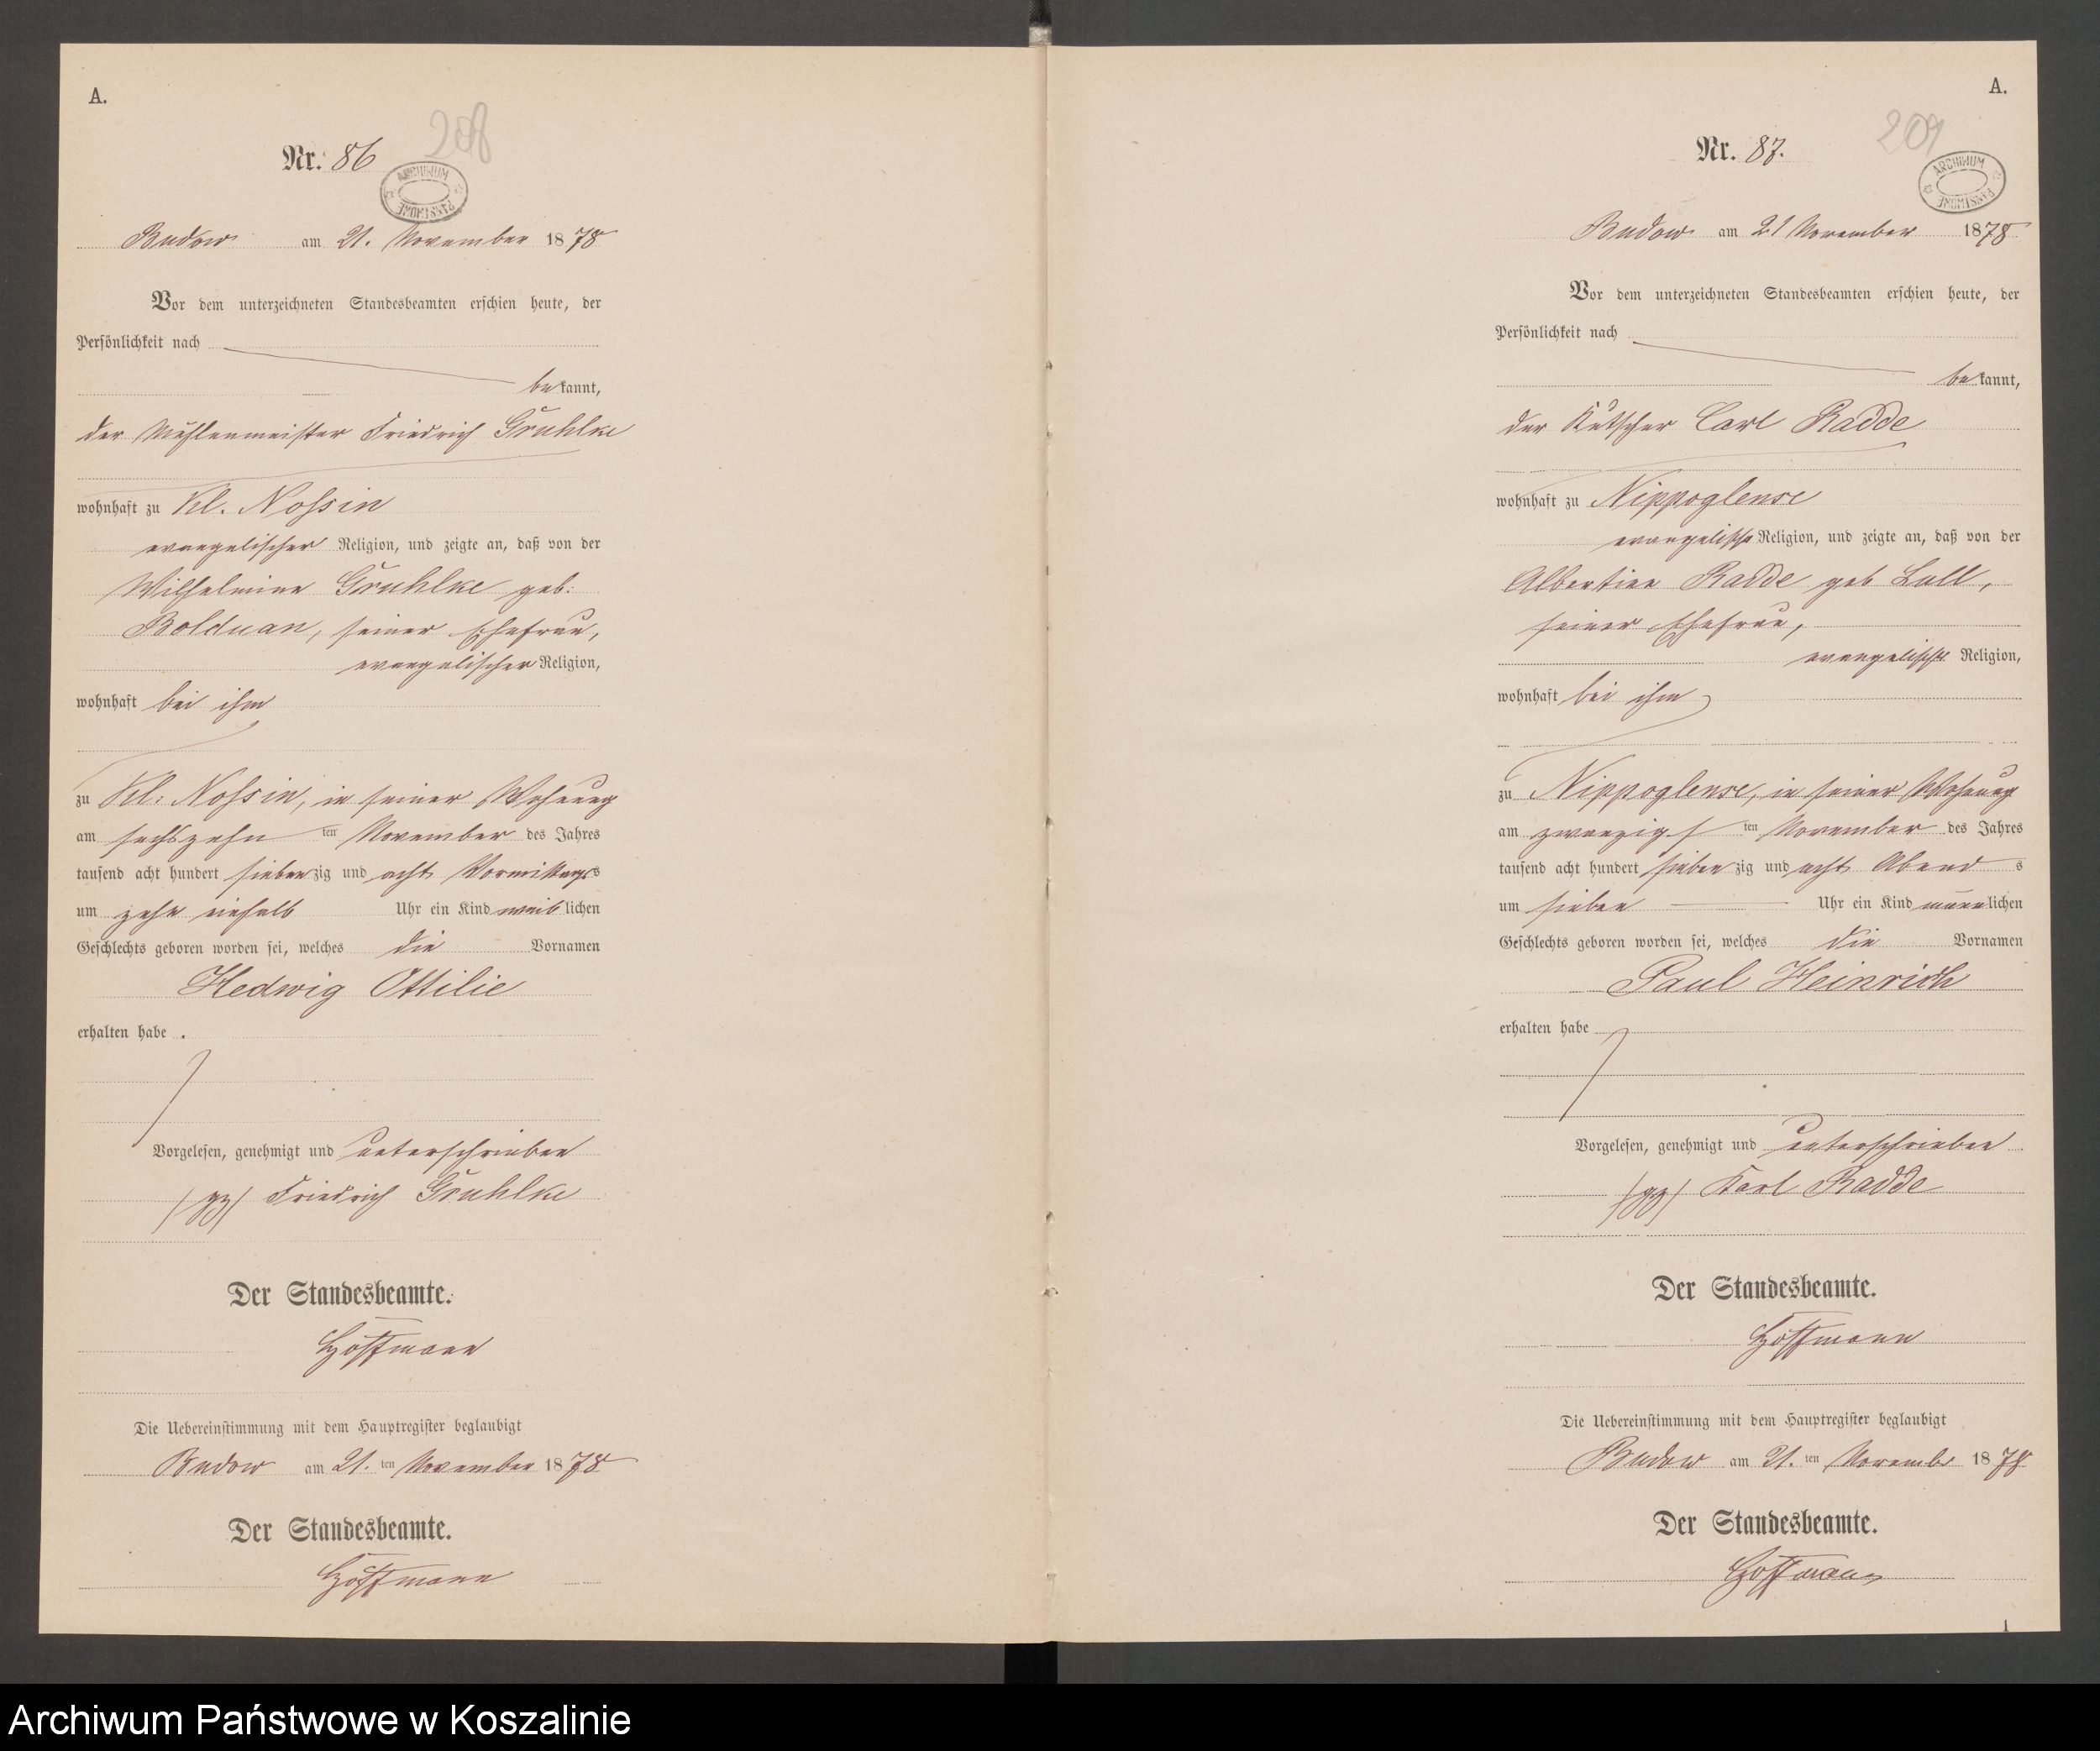 A.
208
Nr. 86
ARCHIWUM PAŃSTWOWE
Budow am 21. November 1878
Vor dem unterzeichneten Standesbeamten erschien heute, der
Persönlichkeit nach
bekannt,
der Mühlenmeister Friedrich Gruhlke
wohnhaft zu Kl. Nossin
evangelischer Religion, und zeigte an, daß von der
Wilhelmine Gruhlke geb:
Bolduan, seiner Ehefrau,
evangelischer Religion,
wohnhaft bei ihm
zu Kl: Nossin, in seiner Wohnung
am sechszehn ten November des Jahres
tausend acht hundert siebenzig und acht Vormittags
um zehn einhalb Uhr ein Kind weiblichen
Geschlechts geboren worden sei, welches die Vornamen
Hedwig Ottilie
erhalten habe.
Vorgelesen, genehmigt und unterschrieben
/gz/ Friedrich Gruhlke
Der Standesbeamte.
Hoffmann
Die Uebereinstimmung mit dem Hauptregister beglaubigt
Budow am 21. ten November 1878
Der Standesbeamte.
Hoffmann
A.
209
Nr. 87.
ARCHIWUM PAŃSTWOWE
Budow am 21 November 1878
Vor dem unterzeichneten Standesbeamten erschien heute, der
Persönlichkeit nach
bekannt,
der Kutscher Carl Radde
wohnhaft zu Nippoglense
evangelischer Religion, und zeigte an, daß von der
Albertine Radde geb Lall,
seiner Ehefrau,
evangelischer Religion,
wohnhaft bei ihm
zu Nippoglense, in seiner Wohnung
am zwanzigs ten November des Jahres
tausend acht hundert siebenzig und acht Abends
um sieben Uhr ein Kind männlichen
Geschlechts geboren worden sei, welches die Vornamen
Paul Heinrich
erhalten habe
Vorgelesen, genehmigt und unterschrieben
/gz/ Karl Radde
Der Standesbeamte.
Hoffmann
Die Uebereinstimmung mit dem Hauptregister beglaubigt
Budow am 21. ten Novembr 1878
Der Standesbeamte.
Hoffmann
Archiwum Państwowe w Koszalinie